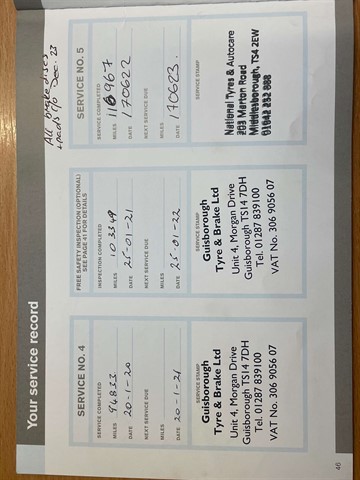 Your service record
SERVICE NO. 4
SERVICE COMPLETED
MILES 94833
DATE 20-1-20
NEXT SERVICE DUE
MILES
DATE 20-1-21
SERVICE STAMP
Guisborough
Tyre & Brake Ltd
Unit 4, Morgan Drive
Guisborough TS14 7DH
Tel. 01287 839100
VAT No. 306 9056 07
FREE SAFETY INSPECTION (OPTIONAL)
SEE PAGE 41 FOR DETAILS
INSPECTION COMPLETED
MILES 103349
DATE 25-01-21
NEXT SERVICE DUE
MILES
DATE 25-01-22
SERVICE STAMP
Guisborough
Tyre & Brake Ltd
Unit 4, Morgan Drive
Guisborough TS14 7DH
Tel. 01287 839100
VAT No. 306 9056 07
All brake discs
+ pads 4/P Dec 23
SERVICE NO. 5
SERVICE COMPLETED
MILES 116967
DATE 170622
NEXT SERVICE DUE
MILES
DATE 170623.
SERVICE STAMP
National Tyres & Autocare
203 Marton Road
Middlesbrough, TS4 2EW
01642 232 888
46